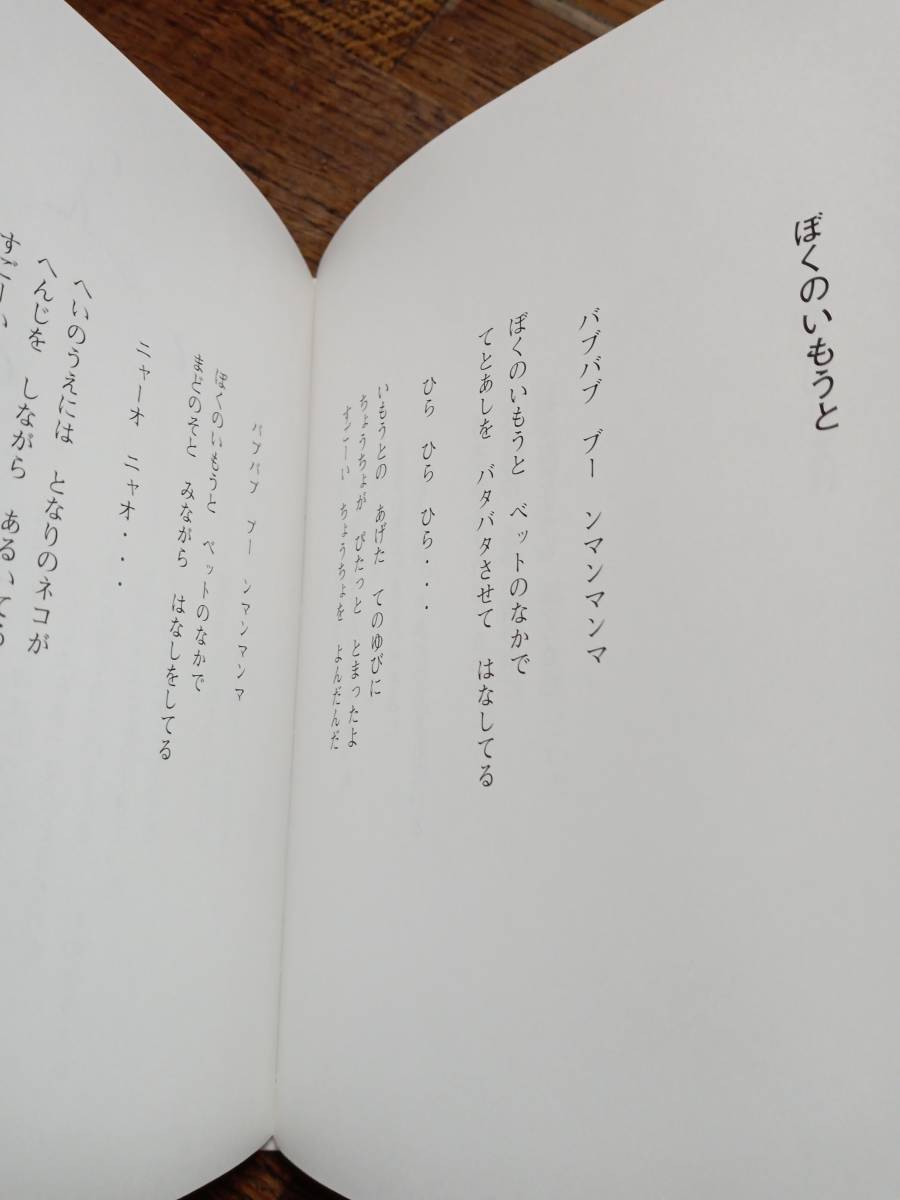 ぼくのいもうと
バブバブ　ブー　ンマンマンマ
ぼくのいもうと　ベットのなかで
てとあしを　バタバタさせて　はなしてる
ひら　ひら　ひら・・・
いもうとの　あげた　てのゆびに
ちょうちょが　ぴたっと　とまったよ
すごーい　ちょうちょを　よんだんだ
バブバブ　ブー　ンマンマンマ
ぼくのいもうと　ベットのなかで
まどのそと　みながら　はなしをしてる
ニャーオ　ニャオ・・・
へいのうえには　となりのネコが
へんじを　しながら　あるいてる
すごーい